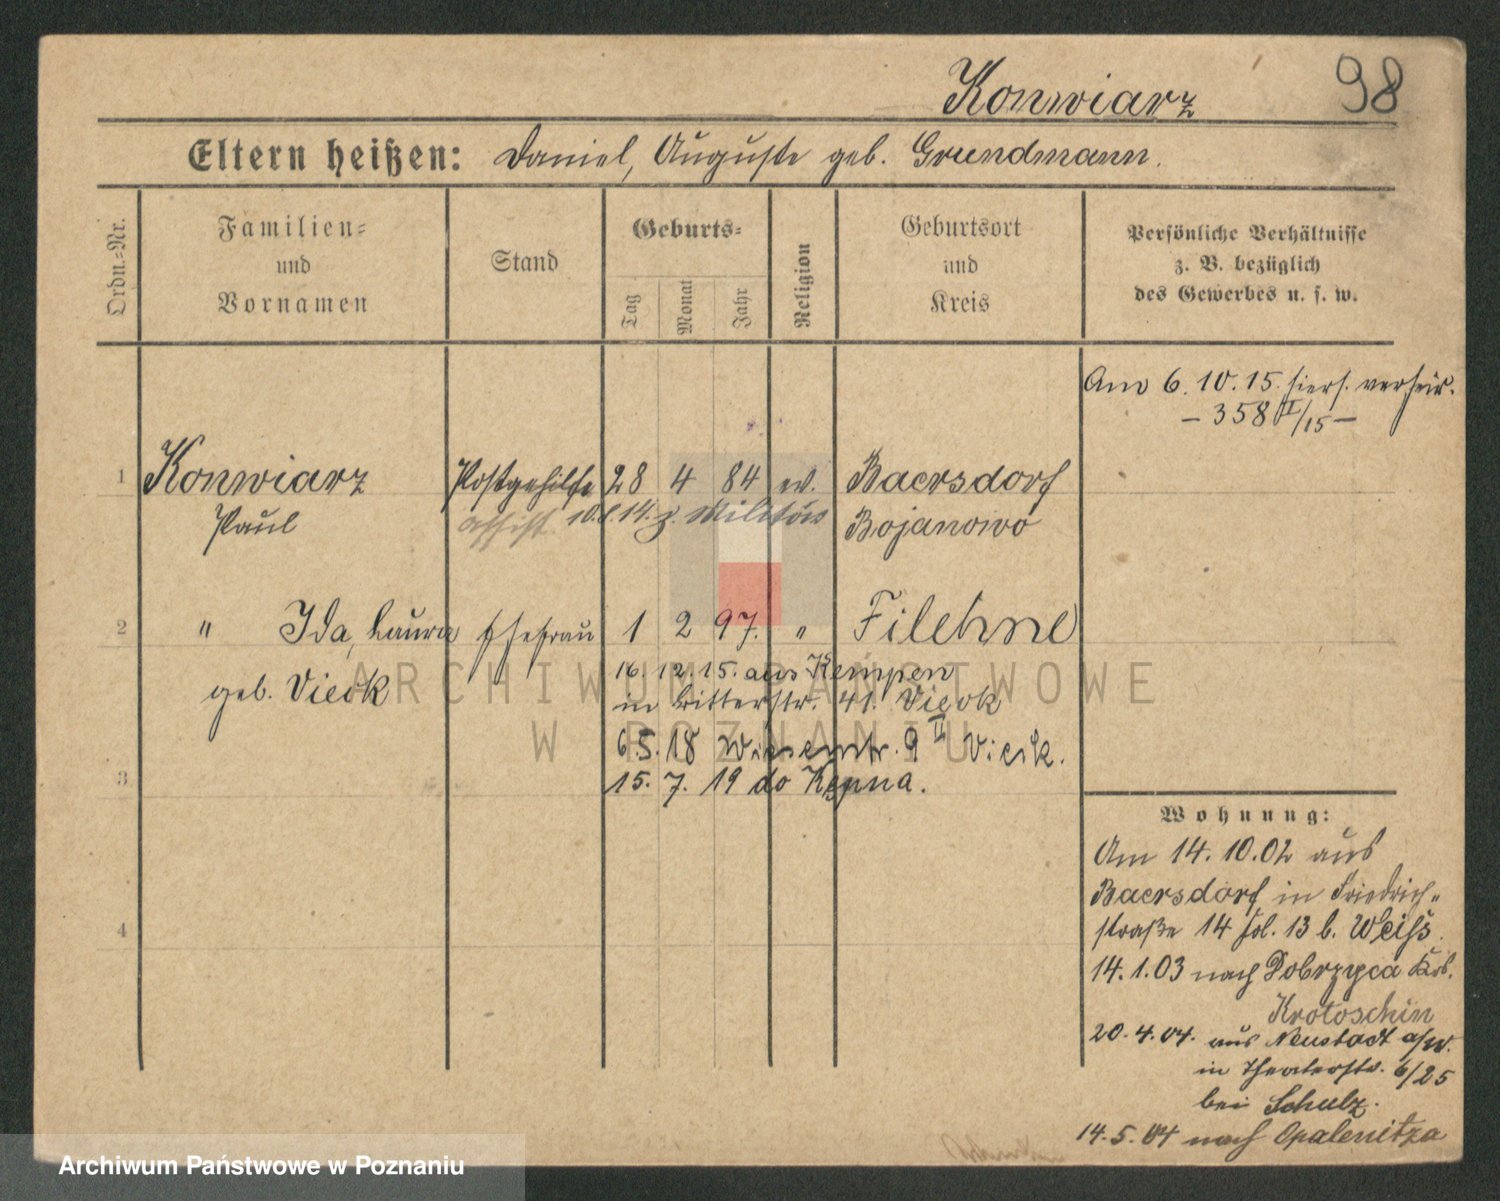 Konwiarz
98
Eltern heißen: Daniel, Auguste geb. Grundmann.
Ordn.-Nr.
Familien-
und
Vornamen
Stand
Geburts-
Tag
Monat
Jahr
Religion
Geburtsort
und
Kreis
Persönliche Verhältnisse
z. B. bezüglich
des Gewerbes u. s. w.
Am 6.10.15. hiers. verheir.
– 358 II/15 –
1 Konwiarz Postgehilfe 28 4 84 ev. Baersdorf
Paul assist. 14. z. Militär Bojanowo
2 " Ida, Laura Ehefrau 1 2 97. " Filehne
geb. Vieck
16.12.15. aus Kempen
in Ritterstr. 41. Vieck
6.5.18 Wiesenstr. 9 II Vieck.
3
15.7.19 do Kępna.
4
Wohnung:
Am 14.10.02 aus
Baersdorf in Friedrich-
straße 14 Hol. 13 b. Weiß.
14.1.03 nach Dobrzyca Krs.
Krotoschin
20.4.04. aus Neustadt a/W.
in Theaterstr. 6/25
bei Schulz.
14.5.04 nach Opalenitza
ARCHIWUM PAŃSTWOWE
W POZNANIU
Archiwum Państwowe w Poznaniu